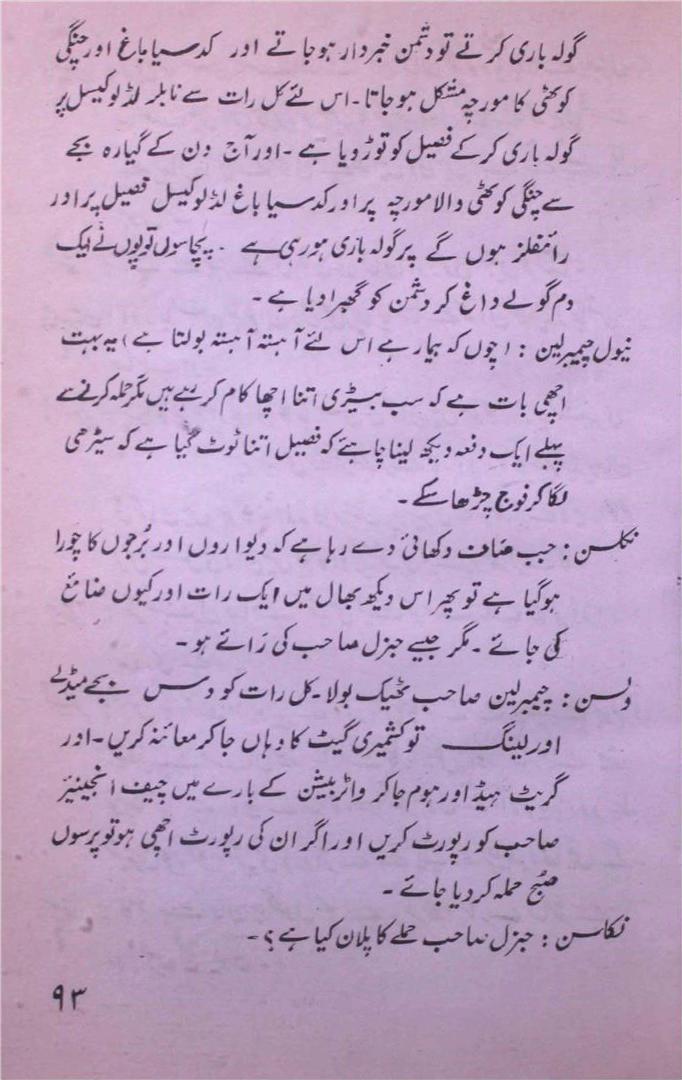 گولہ باری کرتے تو دشمن خبردار ہو جاتے اور کدسیا باغ اور چنگی
کوٹھی کا مورچہ مشکل ہو جاتا۔ اس لئے کل رات سے نابلر لڈلوکیسل پر
گولہ باری کر کے فصیل کو توڑ دیا ہے۔ اور آج دن کے گیارہ بجے
سے چنگی کوٹھی والا مورچہ پر اور کدسیا باغ لڈلوکیسل فصیل پر اور
رائفلز ہوں گے پر گولہ باری ہو رہی ہے۔ پچاسوں توپوں نے ایک
دم گولے داغ کر دشمن کو گھبرا دیا ہے۔
نیول چیمبرلین : (چوں کہ بیمار ہے اس لئے آہستہ آہستہ بولتا ہے) یہ بہت
اچھی بات ہے کہ سب بیڑی اتنا اچھا کام کر رہے ہیں مگر حملہ کرنے سے
پہلے ایک دفعہ دیکھ لینا چاہئے کہ فصیل اتنا ٹوٹ گیا ہے کہ سیڑھی
لگا کر فوج چڑھا سکے۔
نکلسن : جب صاف دکھائی دے رہا ہے کہ دیواروں اور بُرجوں کا چورا
ہو گیا ہے تو پھر اس دیکھ بھال میں ایک رات اور کیوں ضائع
کی جائے۔ مگر جیسے جنرل صاحب کی رائے ہو۔
ولسن : چیمبرلین صاحب ٹھیک بولا۔ کل رات کو دس بجے میڈلے
اور لینگ تو کشمیری گیٹ کا وہاں جا کر معائنہ کریں۔ اور
گریٹ ہیڈ اور ہوم جا کر واٹر بیشن کے بارے میں چیف انجینیئر
صاحب کو رپورٹ کریں اور اگر ان کی رپورٹ اچھی ہو تو پرسوں
صُبح حملہ کر دیا جائے۔
نکلسن : جنرل صاحب حملے کا پلان کیا ہے؟۔
۹۳